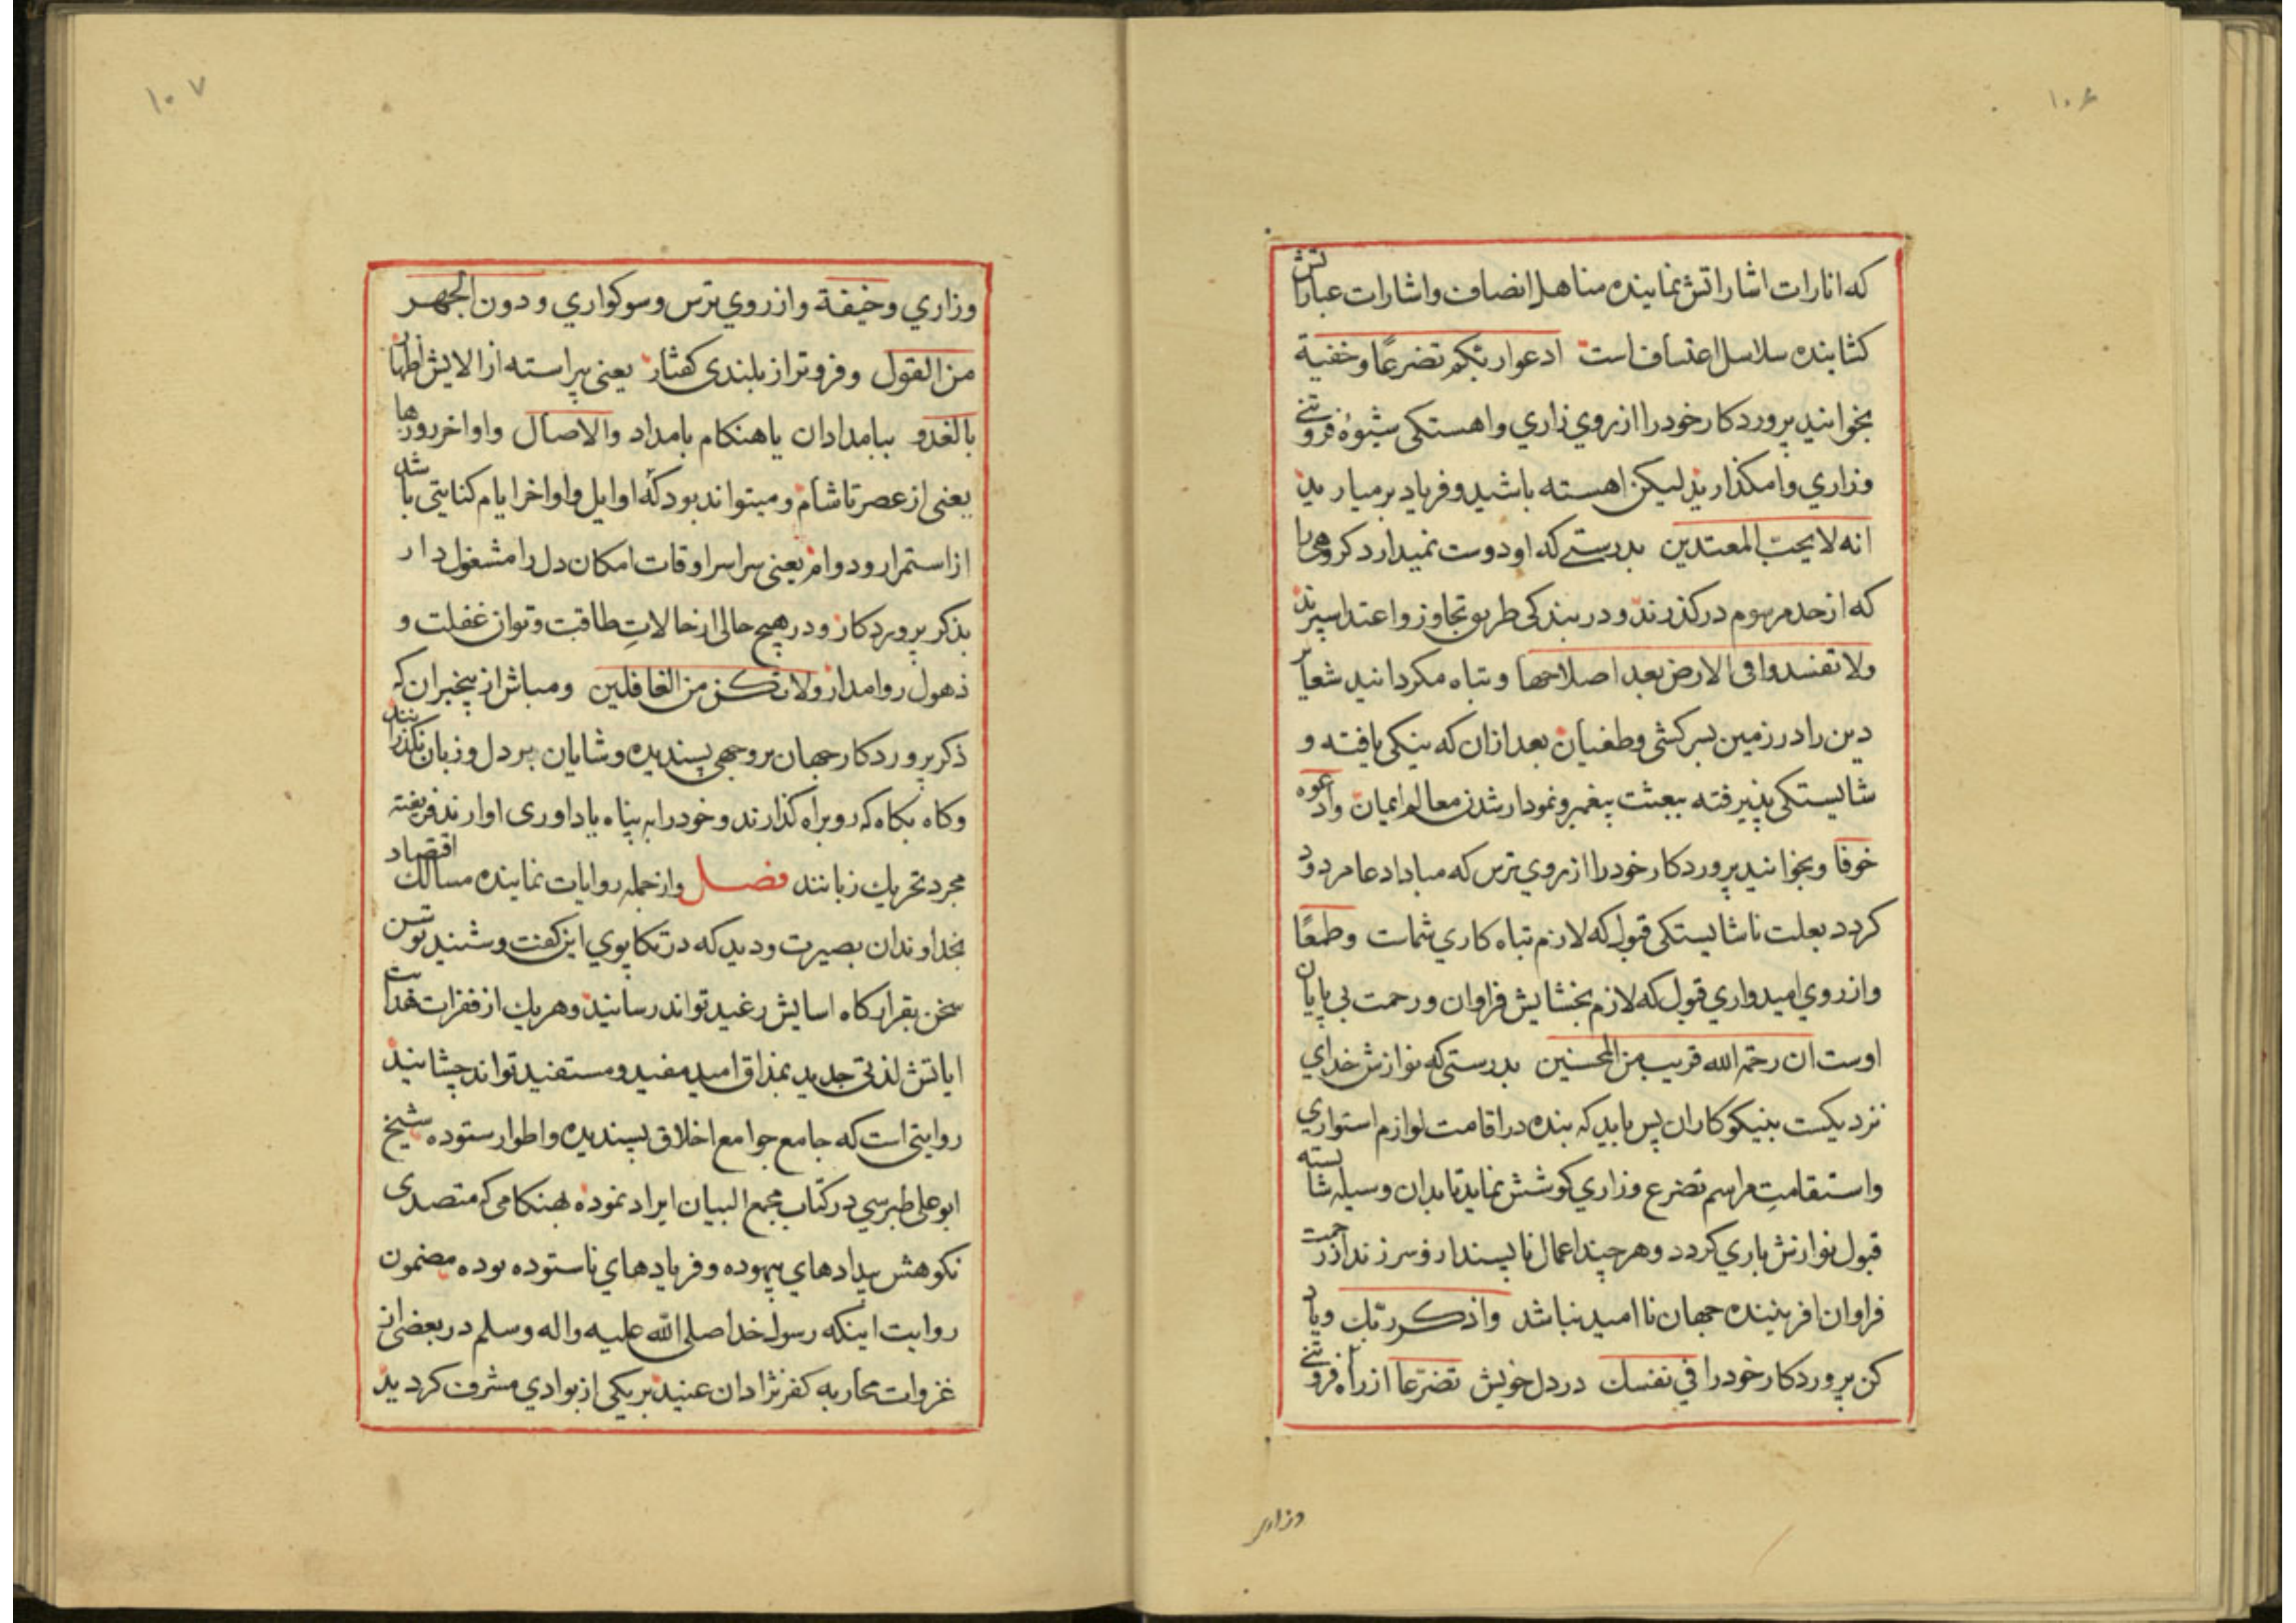 ۱۰۶
که اثارات اشاراتش نماینده مناهل انصاف و اشارات عباراتش
کشاینده سلاسل اعتساف است ادعوا ربکم تضرعًا و خفیة
بخوانید پروردکار خود را از روی زاری و اهستکی شیوهٔ فروتنی
وزاری وامکذارید لیکن اهسته باشید و فریاد برمیارید
انه لا یحبّ المعتدین بدرستی که او دوست نمیدارد کروهی را
که از حد مرسوم درکذرند و در بندکی طریق تجاوز و اعتدا سپرند
ولا تفسدوا فی الارض بعد اصلاحها و تباه مکردانید شعایر
دین را در زمین بسرکشی و طغیان بعد از ان که نیکی یافته و
شایستکی پذیرفته ببعثت پیغمبر و نمودار شدن معالم ایمان وادعوه
خوفا و بخوانید پروردکار خود را از روی ترس که مبادا دعا مردود
کردد بعلت ناشایستکی قبول که لازم تباه کاری شماست وطمعًا
و از روی امیدواری قبول که لازم بخشایش فراوان و رحمت بی پایان
اوست ان رحمة الله قریب من المحسنین بدرستی که نوازش خدای
نزدیکست بنیکوکاران پس باید که بنده در اقامت لوازم استواری
و استقامتِ مراسم تضرع و زاری کوشش نماید تا بدان وسیله شایسته
قبول نوازش باری کردد و هر چند اعمال ناپسند ازو سر زند از رحمت
فراوان افریننده جهان ناامید نباشد واذکر ربّک و یاد
کن پروردکار خود را فی نفسک در دل خویش تضرّعا از راه فروتنی
وزاری
۱۰۷
وزاری وخیفة و از روی ترس و سوکواری و دون الجهر
من القول و فروتر از بلندی کفتار یعنی پیراسته از الایش اظهار
بالغدو ببامدادان یا هنکام بامداد والاصال و اواخر روزها
یعنی از عصر تا شام و میتواند بود که اوایل و اواخر ایام کنایتی باشد
از استمرار و دوام یعنی سراسر اوقات امکان دل را مشغول دار
بذکر پروردکار و در هیچ حالی از حالاتِ طاقت و توان غفلت و
ذهول روا مدار ولا تکن من الغافلین و مباش از بیخبران که
ذکر پروردکار جهان بر وجهی پسندیده و شایان بر دل و زبان نکذرانند
و کاه بکاه که رو براه کذارند و خود را به پناه یاد اوری اوارند فریفته
مجرد تحریک زبانند فصل و از جمله روایات نماینده مسالک اقتصاد
بخداوندان بصیرت و دید که در تکاپوی این کفت و شنید توسن
سخن بقرارکاه اسایش رغید تواند رسانید و هر یک از فقرات
ایاتش لذتی جدید بمذاق امید مفید و مستفید تواند چشانید
روایتی است که جامع جوامع اخلاق پسندیده و اطوار ستوده شیخ
ابو علی طبرسی در کتاب مجمع البیان ایراد نموده بهنکامی که متصدی
نکوهش بیدادهای بیهوده و فریادهای ناستوده بوده مضمون
روایت اینکه رسول خدا صلی الله علیه واله وسلم در بعضی از
غزوات محاربه کفر نژادان عنید بر یکی از بوادی مشرف کردید